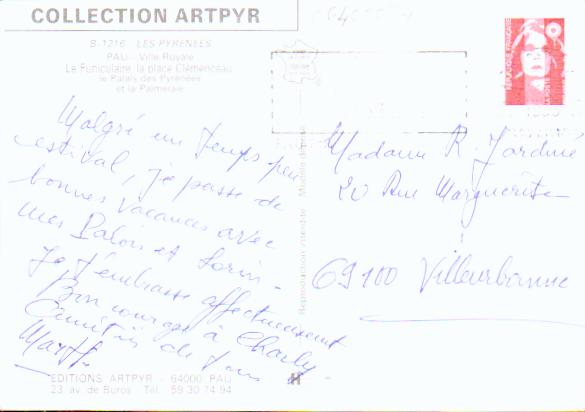 COLLECTION ARTPYR
B-1216 LES PYRENEES
PAU - Ville Royale
Le Funiculaire, la place Clémenceau
le Palais des Pyrénées
et la Palmeraie
Malgré un temps peu
estival, je passe de
bonnes vacances avec
mes Palois et
Je t'embrasse affectueusement
Bon courage à Charly
Amitiés de tous
Reproduction interdite
Madame R. Jardine
20 Rue Marguerite
69100 Villeurbanne
EDITIONS ARTPYR - 64000 PAU
23, av. de Buros - Tél. 59 30 74 94